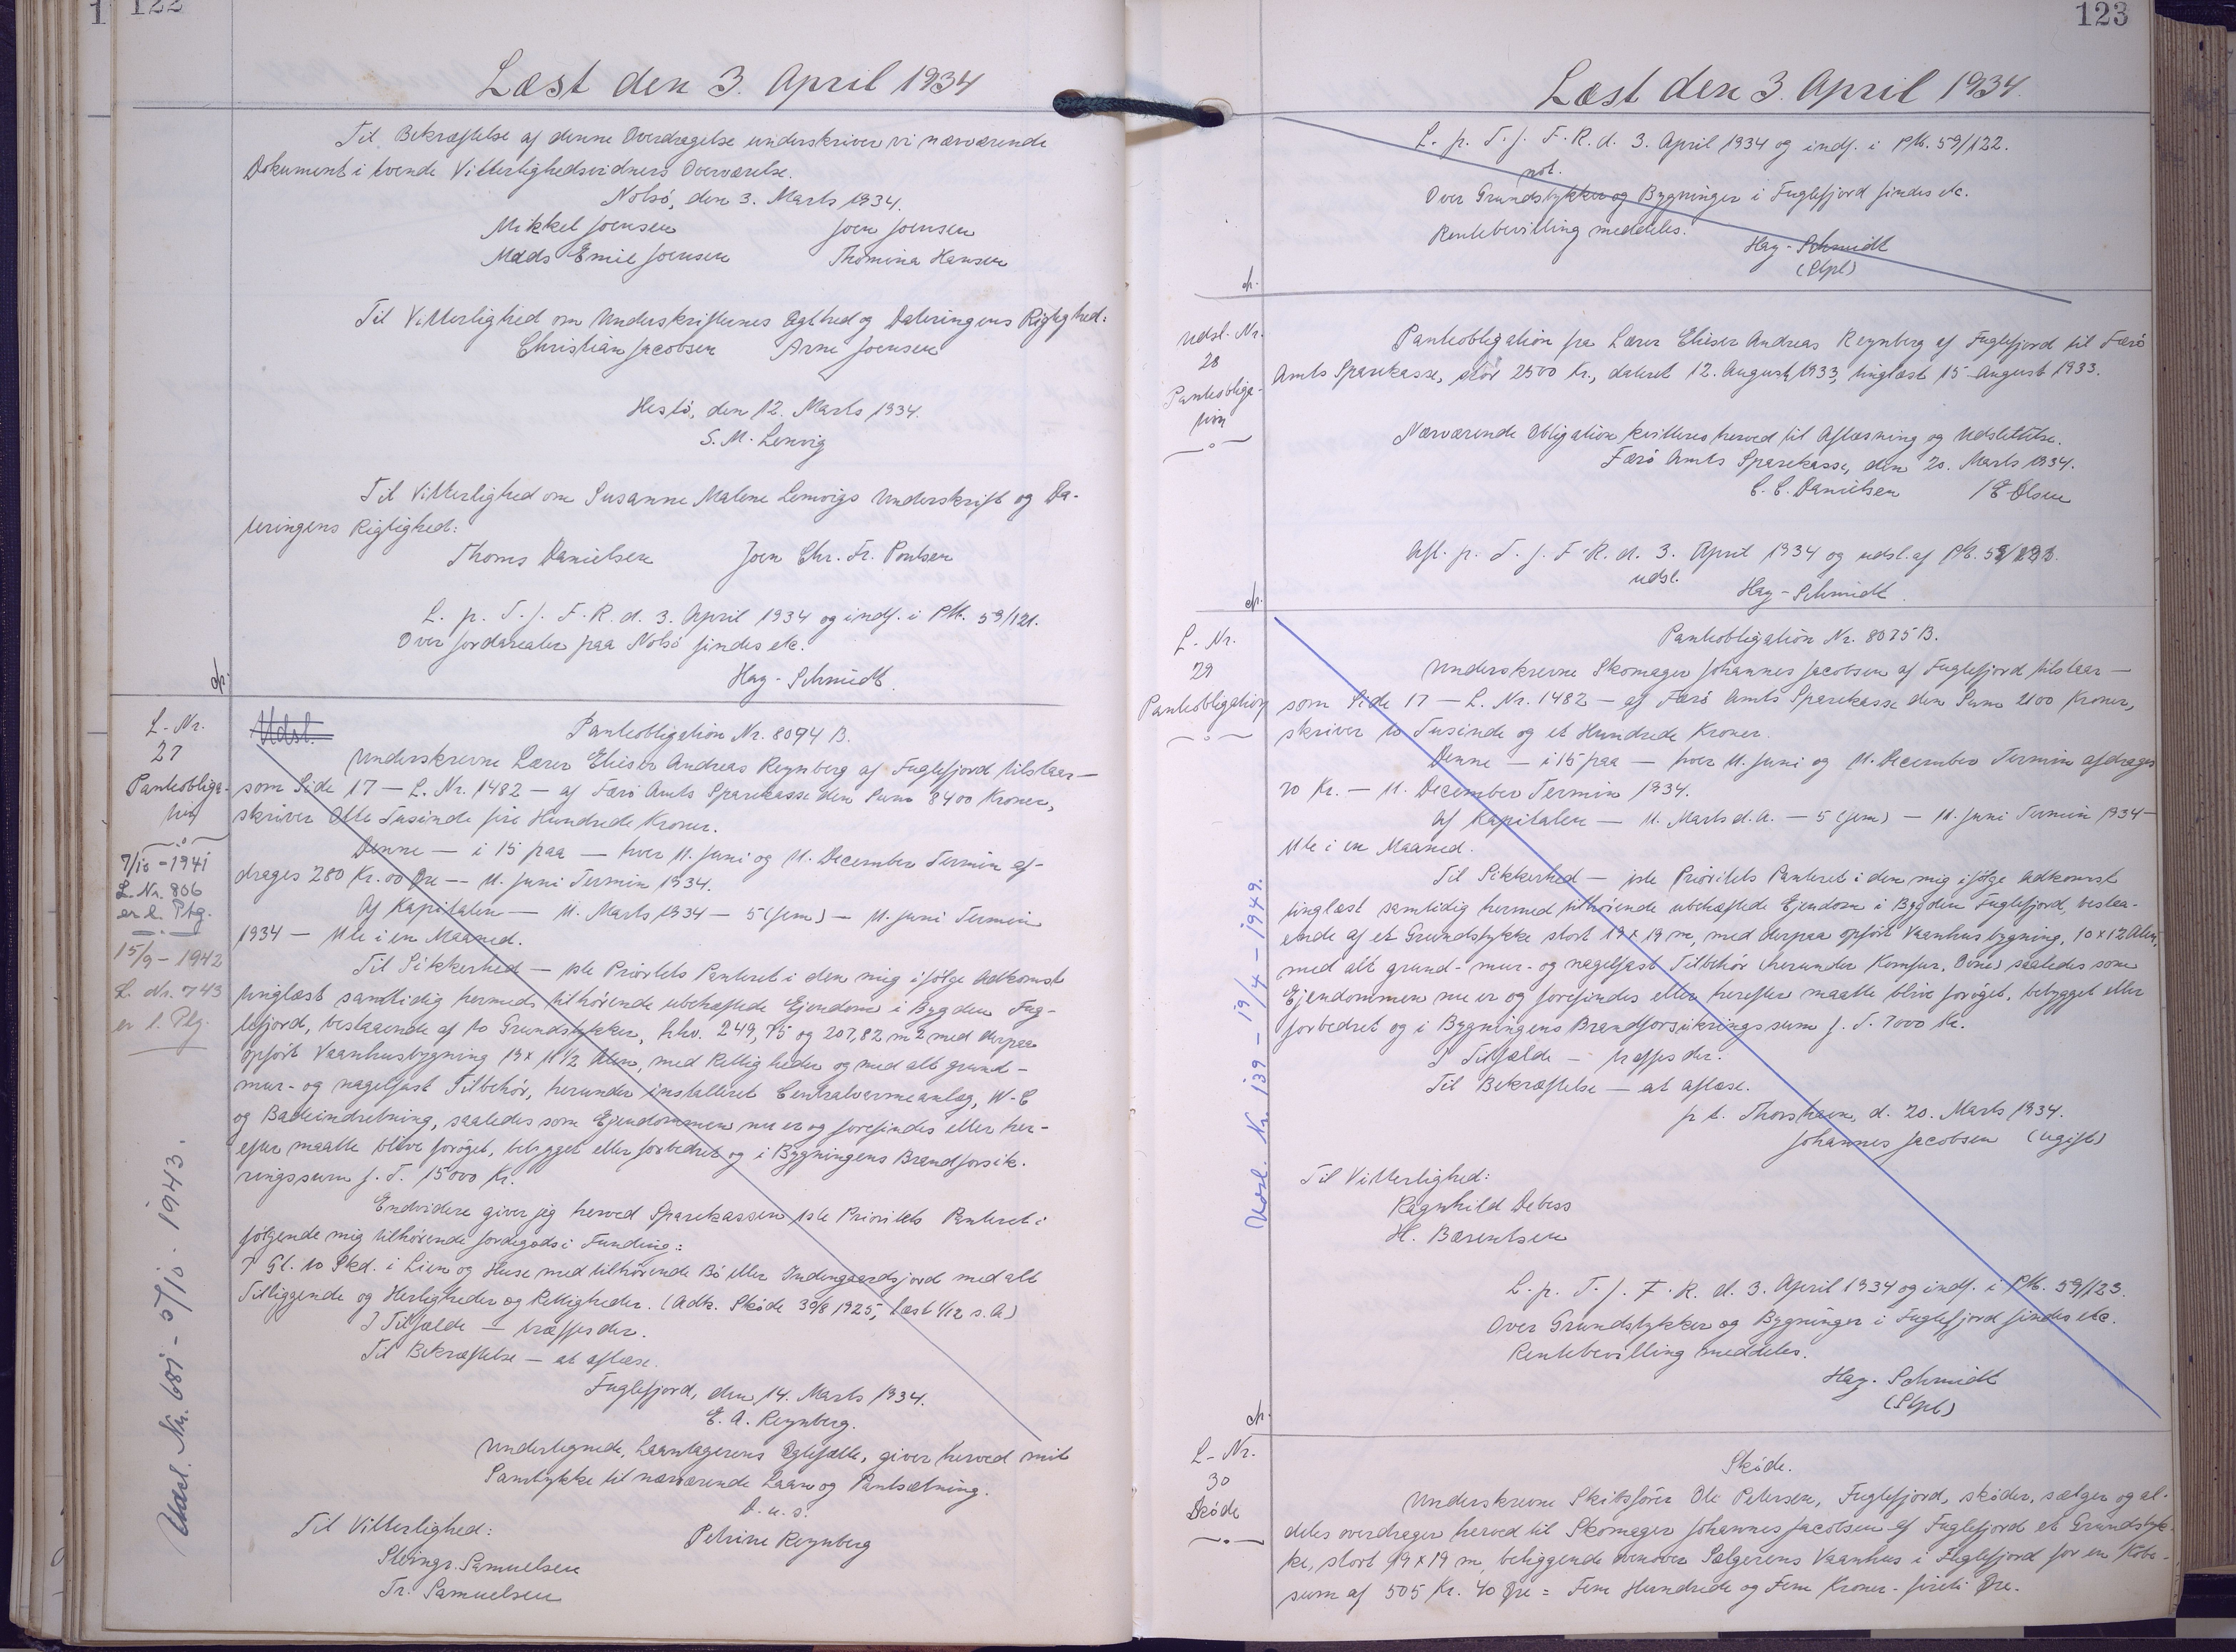 122
Læst den 3. April 1934
Til Bekræftelse af denne Overdragelse underskriver vi nærværende
Dokument i tvende Vitterlighedsvidners Overværelse.
Nolsö, den 3. Marts 1934.
Mikkel Joensen Joen Joensen
Mads Emil Joensen Thomina Hansen
Til Vitterlighed om Underskrifternes Ægthed og Dateringens Rigtighed:
Christian Jacobsen Arne Joensen
Hestö, den 12. Marts 1934.
S. M. Lenvig
Til Vitterlighed om Susanne Malene Lenvigs Underskrift og Da-
teringens Rigtighed:
Thoms Danielsen Joen Chr. Fr. Poulsen
L. p. T. f. F. R. d. 3. April 1934 og indf. i PM. 59/121.
Over Jordarealer paa Nolsö findes etc.
Hay-Schmidt.
L. Nr.
27
Pantobliga-
tion
7/10-1941
L. Nr. 806
er l. Ptg.
15/9-1942
L. Nr. 743
er l. Ptg.
Udsl. Nr. 681 - 5/10. 1943.
Udsl.
Panteobligation Nr. 8094 B.
Underskrevne Lærer Elieser Andreas Reynberg af Fuglefjord tilstaar—
som Side 17 — L. Nr. 1482 — af Færö Amts Sparekasse den Sum 8400 Kroner,
skriver Otte Tusinde fire Hundrede Kroner.
Denne — i 15 paa — hver 11. Juni og 11. December Termin af-
drages 280 Kr. 00 Øre — 11. Juni Termin 1934.
Af Kapitalen — 11. Marts 1934 — 5 (fem) — 11. Juni Termin
1934 — 11te i en Maaned.
Til Sikkerhed — 1ste Prioritets Panteret i den mig ifølge Adkomst
tinglæst samtidig hermed tilhörende ubehæftede Ejendom i Bygden Fug-
lefjord, bestaaende af to Grundstykker, hhv. 249,75 og 207,82 m2 med derpaa
opført Vaanhusbygning 13 x 11 1/2 Alen, med Rettigheder og med alt grund-
mur- og nagelfast Tilbehör, herunder installeret Centralvarmeanlæg, W-C
og Badeindretning, saaledes som Ejendommen nu er og forefindes eller her-
efter maatte blive forøget, bebygget eller forbedret og i Bygningens Brandforsik-
ringssum f. T. 15000 Kr.
Endvidere giver jeg herved Sparekassen 1ste Prioritets Panteret i
følgende mig tilhörende Jordegods i Funding:
7 Gl. 10 Skd. i Lien og Huse med tilhörende Bö eller Indengaardsjord med alt
Tilliggende og Herligheder og Rettigheder. (Adk. Sköde 30/8 1925, læst 1/12 s. A)
I Tilfælde — træffes der.
Til Bekræftelse — at aflæse.
Fuglefjord, den 14. Marts 1934.
E. A. Reynberg.
Undertegnede, Laantagerens Ægtefælle, giver herved mit
Samtykke til nærværende Laan og Pantsætning.
D. u. s.
Petrine Reynberg
Til Vitterlighed:
Steingr. Samuelsen
Tr. Samuelsen
123
Læst den 3. April 1934.
L. p. T. f. F. R. d. 3. April 1934 og indf. i PM. 59/122.
not.
Over Grundstykker og Bygninger i Fuglefjord findes etc.
Rentebevilling meddeles.
Hay-Schmidt
(Stpl)
Udsl. Nr.
28
Panteobliga-
tion
Panteobligation fra Lærer Elieser Andreas Reynberg af Fuglefjord til Færö
Amts Sparekasse, stor 2500 Kr., dateret 12. August 1933, tinglæst 15 August 1933.
Nærværende Obligation kvitteres herved til Aflæsning og Udslettelse.
Færö Amts Sparekasse, den 20. Marts 1934.
C. C. Danielsen / E Olsen
Afl. p. T. f. F. R. d. 3. April 1934 og udsl. af PM.
udsl.
Hay-Schmidt.
L. Nr.
29
Panteobligation
Udsl. Nr. 139 - 19/4 - 1949.
Panteobligation Nr. 8075 B.
Underskrevne Skomager Johannes Jacobsen af Fuglefjord tilstaar —
som Side 17 — L. Nr. 1482 — af Færö Amts Sparekasse den Sum 2100 Kroner,
skriver to Tusinde og et Hundrede Kroner.
Denne — i 15 paa — hver 11. Juni og 11. December Termin afdrages
70 Kr. — 11. December Termin 1934.
Af Kapitalen — 11. Marts d. A. — 5 (fem) — 11. Juni Termin 1934—
11te i en Maaned.
Til Sikkerhed — 1ste Prioritets Panteret i den mig ifölge Adkomst
tinglæst samtidig hermed tilhörende ubehæftede Ejendom i Bygden Fuglefjord, bestaa-
ende af et Grundstykke stort 19 x 19 m, med derpaa opfört Vaanhusbygning, 10 x 12 Alen,
med alt grund- mur- og nagelfast Tilbehör (herunder Komfur, Ovne) saaledes som
Ejendommen nu er og forefindes eller herefter maatte blive foröget, bebygget eller
forbedret og i Bygningens Brandforsikringssum f. T. 7000 Kr.
I Tilfælde — træffes der.
Til Bekræftelse — at aflæse.
p t. Thorshavn, d. 20. Marts 1934.
Johannes Jacobsen (ugift)
Til Vitterlighed:
Ragnhild Debess
H. Bærentsen
L. p. T. f. F. R. d. 3. April 1934 og indf. i PM. 59/123.
Over Grundstykker og Bygninger i Fuglefjord findes etc.
Rentebevilling meddeles.
Hay-Schmidt
(Stpl)
L. Nr.
30
Sköde
Sköde.
Underskrevne Skibsförer Ole Petersen, Fuglefjord, sköder, sælger og al-
deles overdrager herved til Skomager Johannes Jacobsen af Fuglefjord et Grundstyk-
ke, stort 19 x 19 m, beliggende ovenover Sælgerens Vaanhus i Fuglefjord for en Köbe-
sum af 505 Kr. 40 Øre = Fem Hundrede og Fem Kroner - firti Øre.